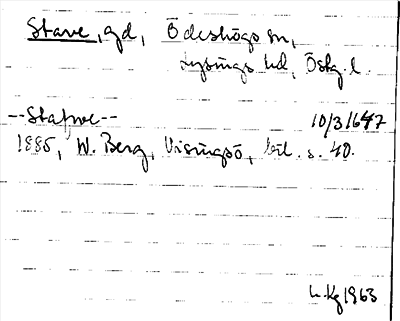 Stave, gd, Ödeshögs sn,
Lysings hd, Östg. l.
--Stafwe-- 10/3 1647
1885, W. Berg, Visingsö, bil. s. 40.
1963